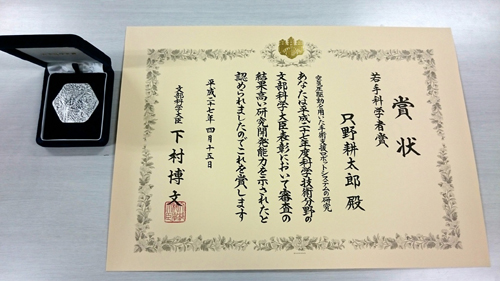 賞状
若手科学者賞
只野耕太郎 殿
空気圧駆動を用いた手術支援ロボットシステムの研究
あなたは平成二十七年度科学技術分野の
文部科学大臣表彰において審査の
結果高い研究開発能力を示されたと
認められましたのでこれを賞します
平成二十七年四月十五日
文部科学大臣 下村博文